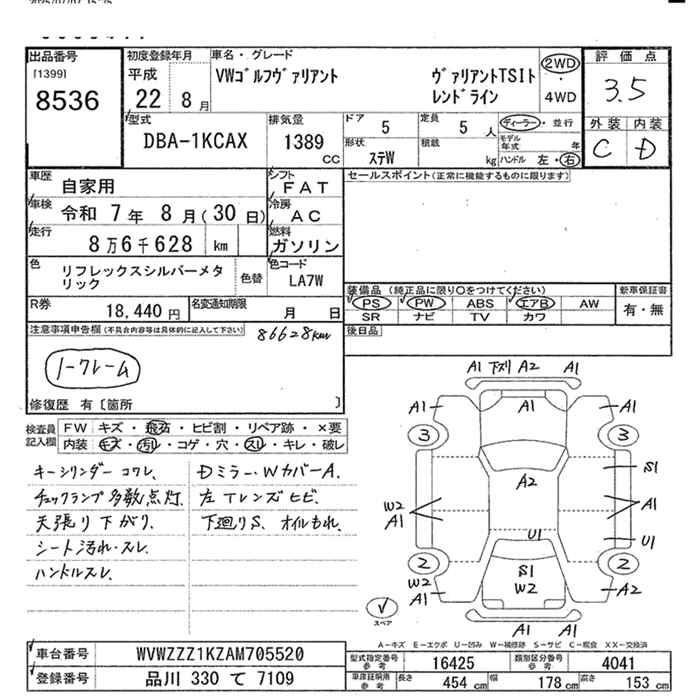 出品番号
[1399]
8536
初度登録年月
平成
22 8月
車名・グレード
VWゴルフヴァリアント ヴァリアントTSIト
レンドライン
2WD
・
4WD
評価点
3.5
型式
DBA-1KCAX
排気量
1389
CC
ドア
5
定員
5人
ディーラー・並行
モデル
年式 年
形状
ステW
積載
kg
ハンドル 左・右
外装 内装
C D
車歴
自家用
シフト
FAT
車検
令和 7年 8月(30日)
冷房
AC
走行
8万6千628 km
燃料
ガソリン
色
リフレックスシルバーメタ
リック
色替
色コード
LA7W
R券
18,440円
名変通知期限
月 日
セールスポイント(正常に機能するものに限ります)
装備品(純正品に限り○をつけてください)
PS PW ABS エアB AW
SR ナビ TV カワ
新車保証書
有・無
後日品
注意事項申告欄(不具合内容等は具体的に記入して下さい)
86628km
ノークレーム
修復歴 有〔箇所 〕
検査員
記入欄
FW キズ・飛石・ヒビ割・リペア跡・×要
内装 キズ・汚れ・コゲ・穴・スレ・キレ・破レ
キーシリンダー コワレ、
チェックランプ多数点灯、
天張り下がり、
シート汚れ・スレ、
ハンドルスレ、
Dミラー・WカバーA、
左Tレンズヒビ、
下廻りS、オイルもれ、
A1 下スリ A2 A1
A1 A1 A1
3 3
A2 S1
W2
A1 A1
U1 U1
2 S1 2
W2 W2 A2
A1 A1
スペア
A1 A1
A-キズ E-エクボ U-凹み W-補修跡 S-サビ C-腐食 XX-交換済
車台番号 WVWZZZ1KZAM705520
登録番号 品川 330 て 7109
型式指定番号
参考
16425
類別区分番号
参考
4041
車庫証明用
参考
長さ 454 cm 幅 178 cm 高さ 153 cm